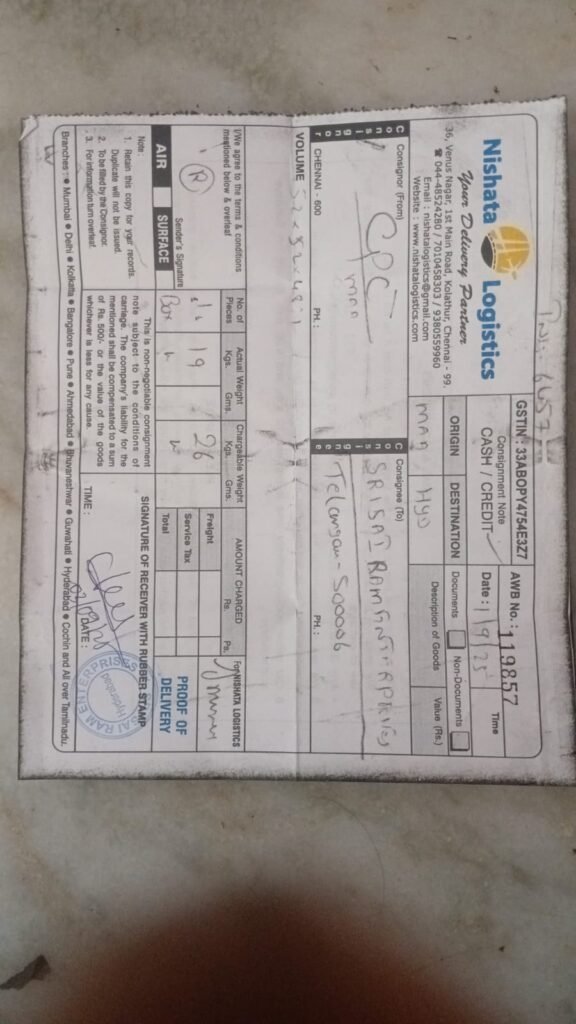 Nishata Logistics
Your Delivery Partner
36, Venus Nagar, 1st Main Road, Kolathur, Chennai - 99.
☎ 044-48524280 / 7010458303 / 9380559960
Email : nishatalogistics@gmail.com
Website : www.nishatalogistics.com
GSTIN : 33ABOPY4754E3Z7
Consignment Note
CASH / CREDIT
AWB No. : 119857
Date : 1/9/25
Time
ORIGIN
DESTINATION
MAA
HYD
Documents
Non-Documents
Description of Goods
Value (Rs.)
Consignor
Consignor (From)
CPC
MAA
CHENNAI - 600
PH. :
Consignee
Consignee (To)
SRI SAI RAM ENTERPRISES
Telangana - 500006
PH. :
VOLUME
I/We agree to the terms & conditions
mentioned below & overleaf
Sender's Signature
AIR
SURFACE
No. of
Pieces
Actual Weight
Kgs. Gms.
Chargeable Weight
Kgs. Gms.
AMOUNT CHARGED
Rs. Ps.
Box
19
26
Freight
Service Tax
Total
For NISHATA LOGISTICS
PROOF OF
DELIVERY
Note :
1. Retain this copy for your records.
Duplicate will not be issued.
2. To be filled by the Consignor.
3. For information turn overleaf.
This is non-negotiable consignment
note subject to the conditions of
carriage. The company's liability for the
mentioned shall be compensated to a sum
of Rs. 500/- or the value of the goods
whichever is less for any cause.
SIGNATURE OF RECEIVER WITH RUBBER STAMP
TIME :
DATE :
SAI RAM ENTERPRISES
Hyderabad
Branches : ● Mumbai ● Delhi ● Kolkatta ● Bangalore ● Pune ● Ahmedabad ● Bhuvaneshwar ● Guwahati ● Hyderabad ● Cochin and All over Tamilnadu.